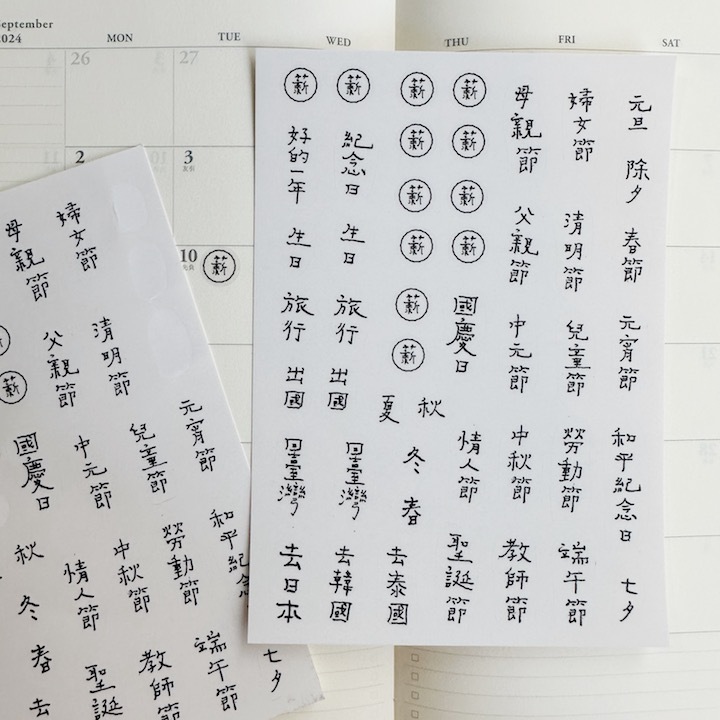 September
2024
MON
TUE
WED
THU
FRI
SAT
26
27
2
3
友引
10
先負
薪
元旦
除夕
春節
元宵節
和平紀念日
七夕
婦女節
清明節
兒童節
勞動節
端午節
母親節
父親節
中元節
中秋節
教師節
薪
薪
薪
薪
國慶日
情人節
聖誕節
薪
薪
薪
薪
薪
薪
秋
夏
冬
春
去泰國
薪
紀念日
生日
旅行
出國
回臺灣
去韓國
薪
好的一年
生日
旅行
出國
回臺灣
去日本
元宵節
和平紀念
七夕
婦女節
清明節
兒童節
勞動節
端午節
母親節
父親節
中元節
中秋節
教師節
薪
國慶日
情人節
聖誕
秋
冬
春
去